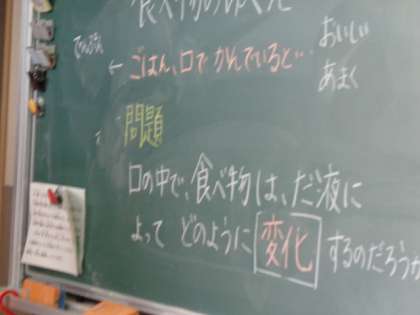 食べ物のゆくえ
でんぷん ← ごはん、口でかんでいると…
おいしい
あまく
問題
口の中で、食べ物は、だ液に
よって どのように 変化 するのだろうか